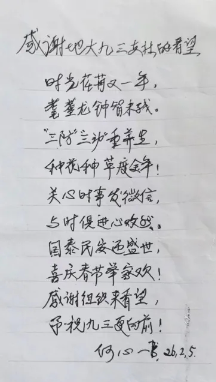 感谢地大九三支社的看望
时光荏苒又一年,
耄耋龙钟皆未残。
"三防""三动"重养生,
种花种草度余年!
关心时事发微信,
与时俱进心欢畅。
国泰民安逢盛世,
喜庆春节举家欢!
感谢组织来看望,
恭祝九三更向前!
何心一 26.2.5.